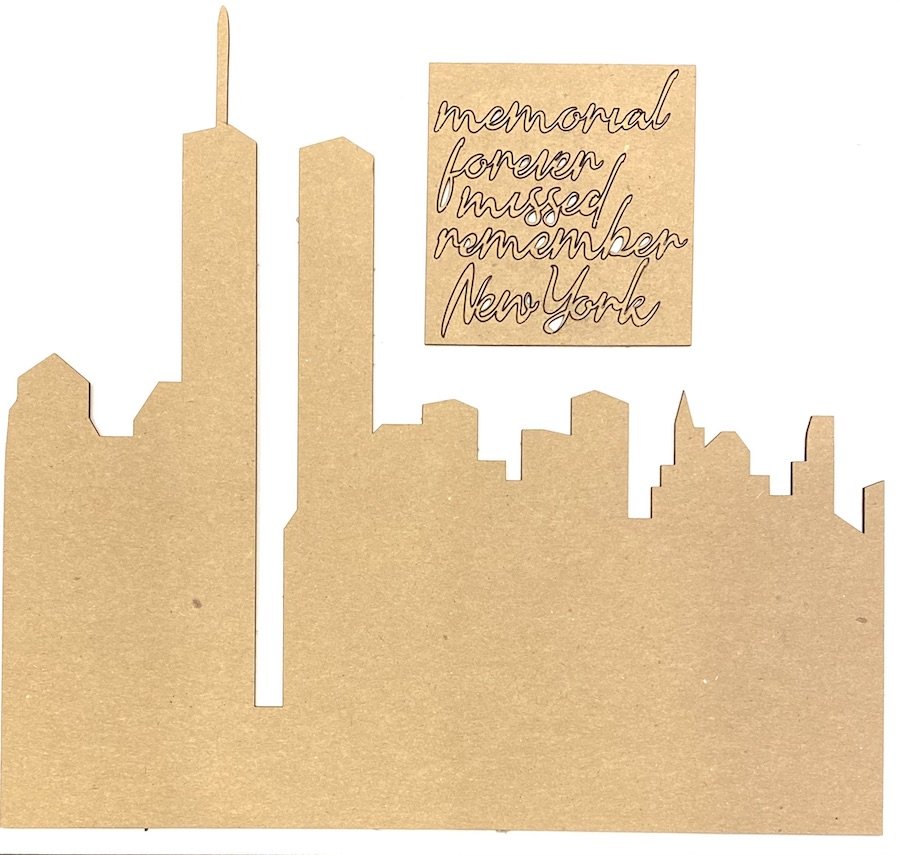 memorial
forever
missed
remember
New York